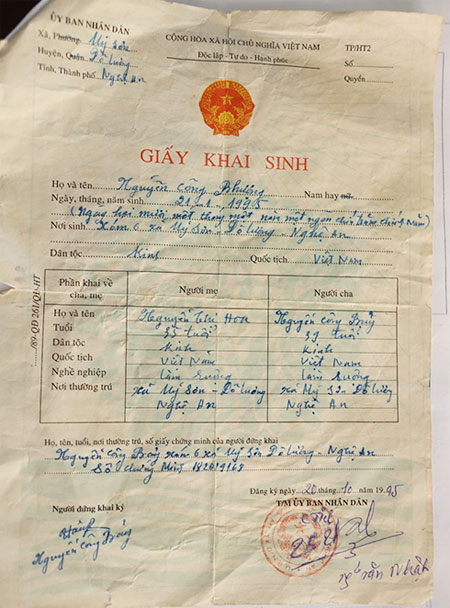 ỦY BAN NHÂN DÂN
Xã, Phường Mỹ Sơn
Huyện, Quận Đô Lương
Tỉnh, Thành phố Nghệ An
CỘNG HÒA XÃ HỘI CHỦ NGHĨA VIỆT NAM
Độc lập - Tự do - Hạnh phúc
TP/HT2
Số
Quyển
GIẤY KHAI SINH
Họ và tên Nguyễn Công Phượng Nam hay nữ
Ngày, tháng, năm sinh 21-1-1995
(Ngày hai mươi mốt tháng một năm một ngàn chín trăm chín năm)
Nơi sinh Xóm 6 xã Mỹ Sơn - Đô Lương - Nghệ An
Dân tộc Kinh Quốc tịch Việt Nam
...../89-QĐ 261/QĐ-HT
Phần khai về cha, mẹ Người mẹ Người cha
Họ và tên Nguyễn Thị Hoa Nguyễn Công Bảy
Tuổi 35 tuổi tuổi
Dân tộc Kinh Kinh
Quốc tịch Việt Nam Việt Nam
Nghề nghiệp Làm ruộng Làm ruộng
Nơi thường trú xã Mỹ Sơn - Đô Lương xã Mỹ Sơn Đô Lương
Nghệ An Nghệ An
Họ, tên, tuổi, nơi thường trú, số giấy chứng minh của người đứng khai
Nguyễn Công Bảy xóm 6 xã Mỹ Sơn Đô Lương - Nghệ An
Số chứng minh
Đăng ký ngày 20 tháng 10 năm 1995
Người đứng khai ký
T/M ỦY BAN NHÂN DÂN
Nguyễn Công Bảy